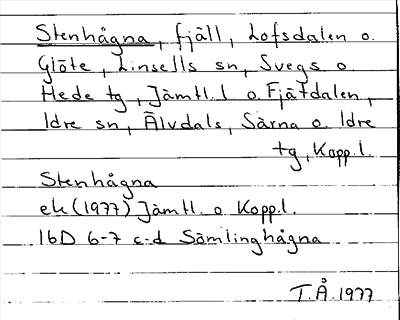 Stenhågna, fjäll, Lofsdalen o.
Glöte, Linsells sn, Svegs o.
Hede tg, Jämtl. l o. Fjätdalen,
Idre sn, Älvdals, Särna o. Idre
tg, Kopp.l.
Stenhågna
ek (1977) Jämtl. o. Kopp.l.
16D 6-7 c-d Sömlinghågna
T.Å. 1977